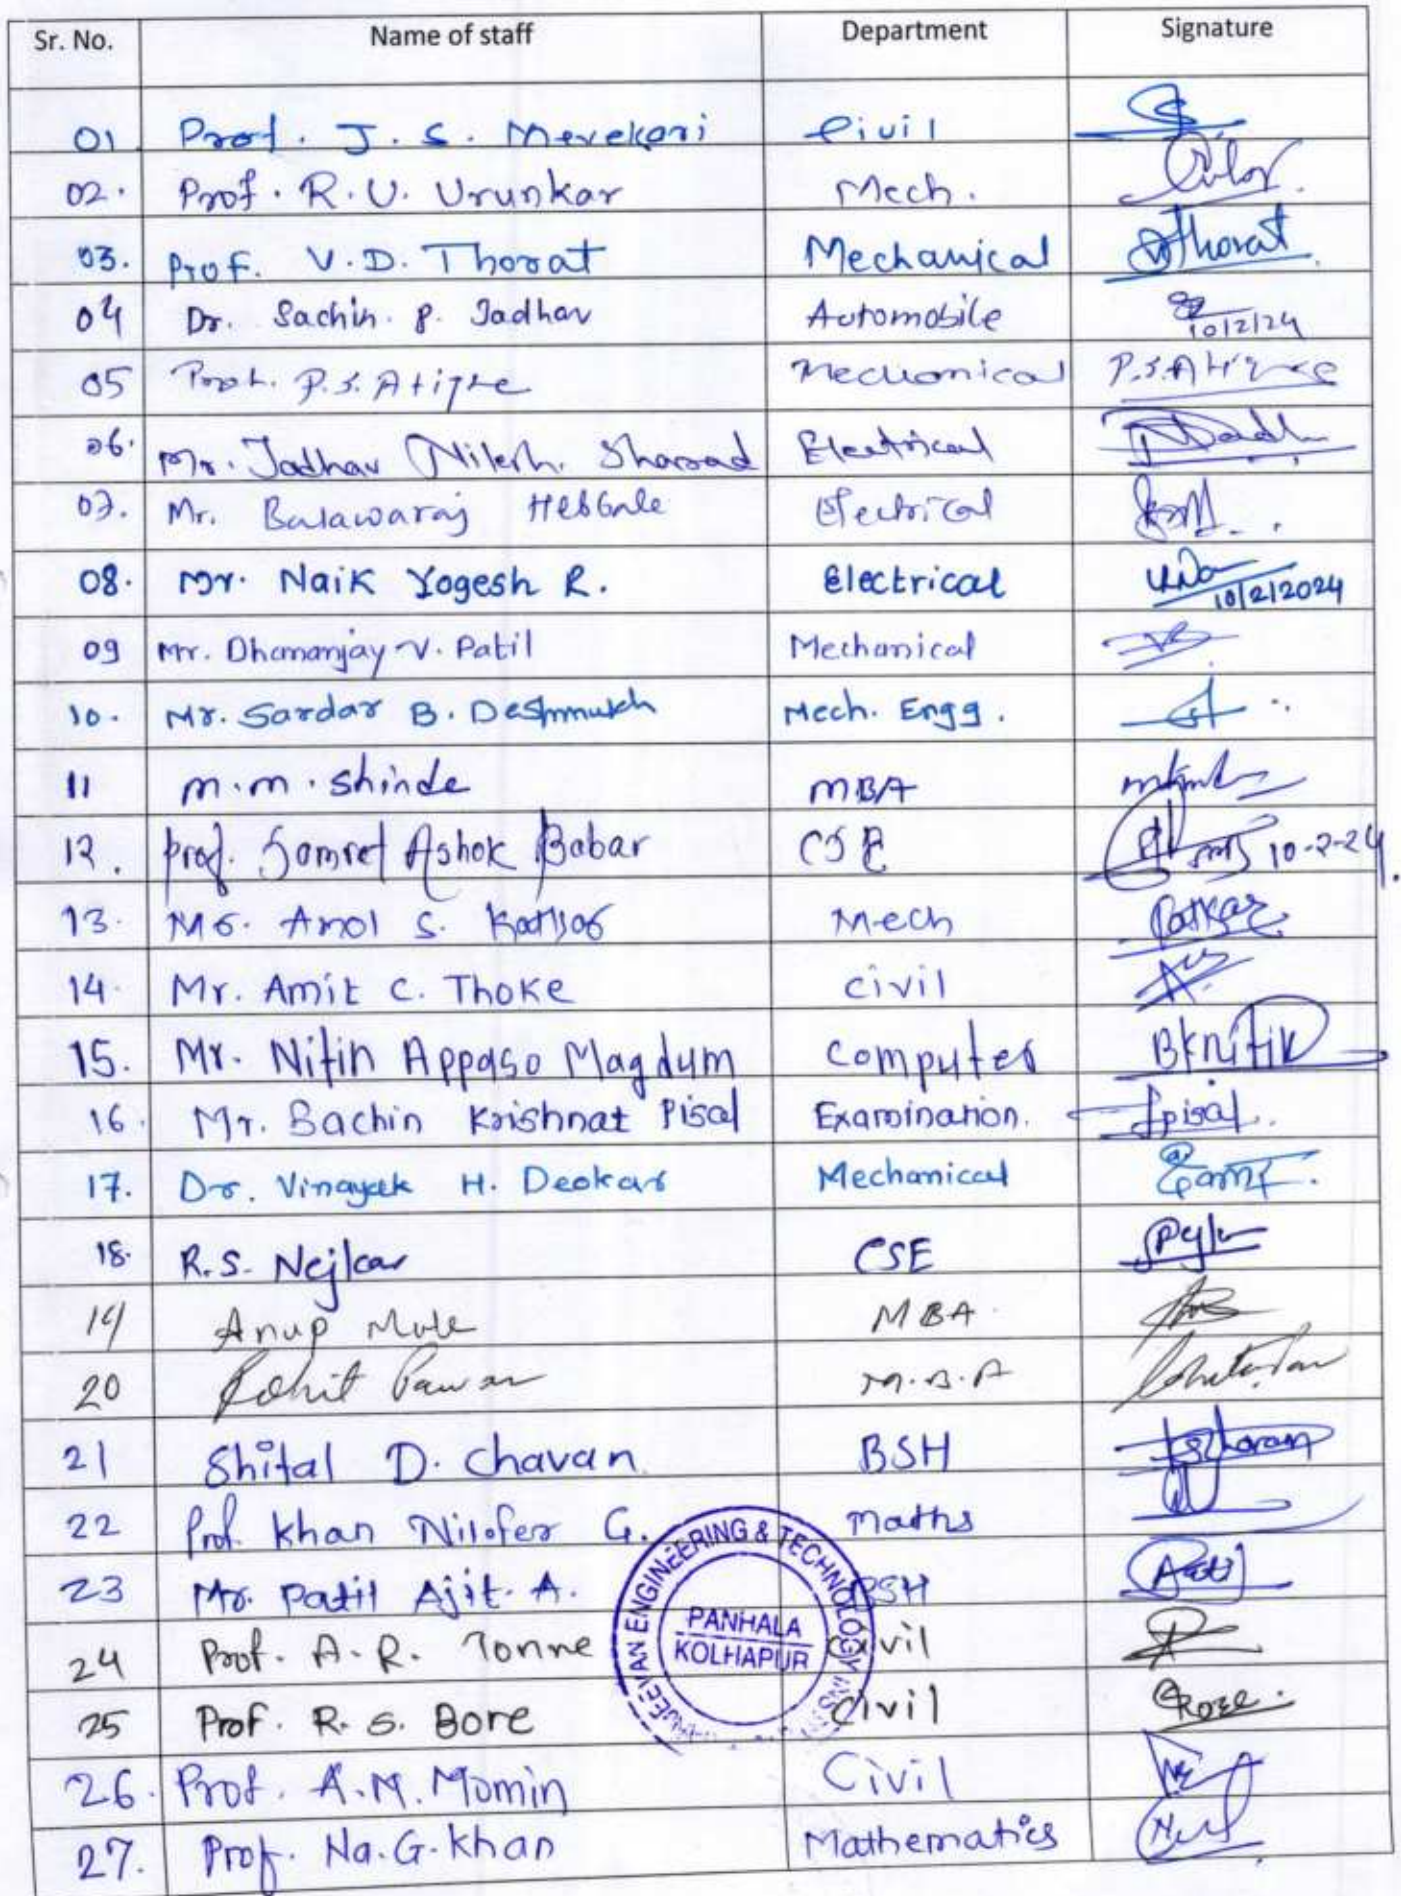 Sr. No. Name of staff Department Signature
01 Prof. J. S. Merekari Civil
02. Prof. R. U. Urunkar Mech.
03. Prof. V. D. Thorat Mechanical Thorat
04 Dr. Sachin. P. Jadhav Automobile 10/2/24
05 Prof. P.S. Atigre Mechanical P.S. Atigre
06. Mr. Jadhav Nilesh. Sharad Electrical
07. Mr. Basawaraj Hebbale Electrical
08. Mr. Naik Yogesh R. Electrical 10/2/2024
09 Mr. Dhananjay V. Patil Mechanical
10. Mr. Sardar B. Deshmukh Mech. Engg.
11 M. M. Shinde MBA
12. Prof. Ashok Babar CSE 10-2-24.
13. Mr. Amol S. Mech
14. Mr. Amit C. Thoke Civil
15. Mr. Nitin Appaso Magdum Computer
16. Mr. Sachin Krishnat Pisal Examination. Spisal.
17. Dr. Vinayak H. Deokar Mechanical
18. R.S. Nejkar CSE
19 Anup Mule MBA
20 Rohit Pawar M.B.A
21 Shital D. Chavan BSH
22 Prof. Khan Nilofer G. Maths
23 Mr. Patil Ajit. A. BSH
24 Prof. A. R. Tonne Civil
25 Prof. R. S. Bore Civil
26. Prof. A. M. Momin Civil
27. Prof. Na. G. Khan Mathematics
ENGINEERING & TECHNOLOGY
PANHALA
KOLHAPUR